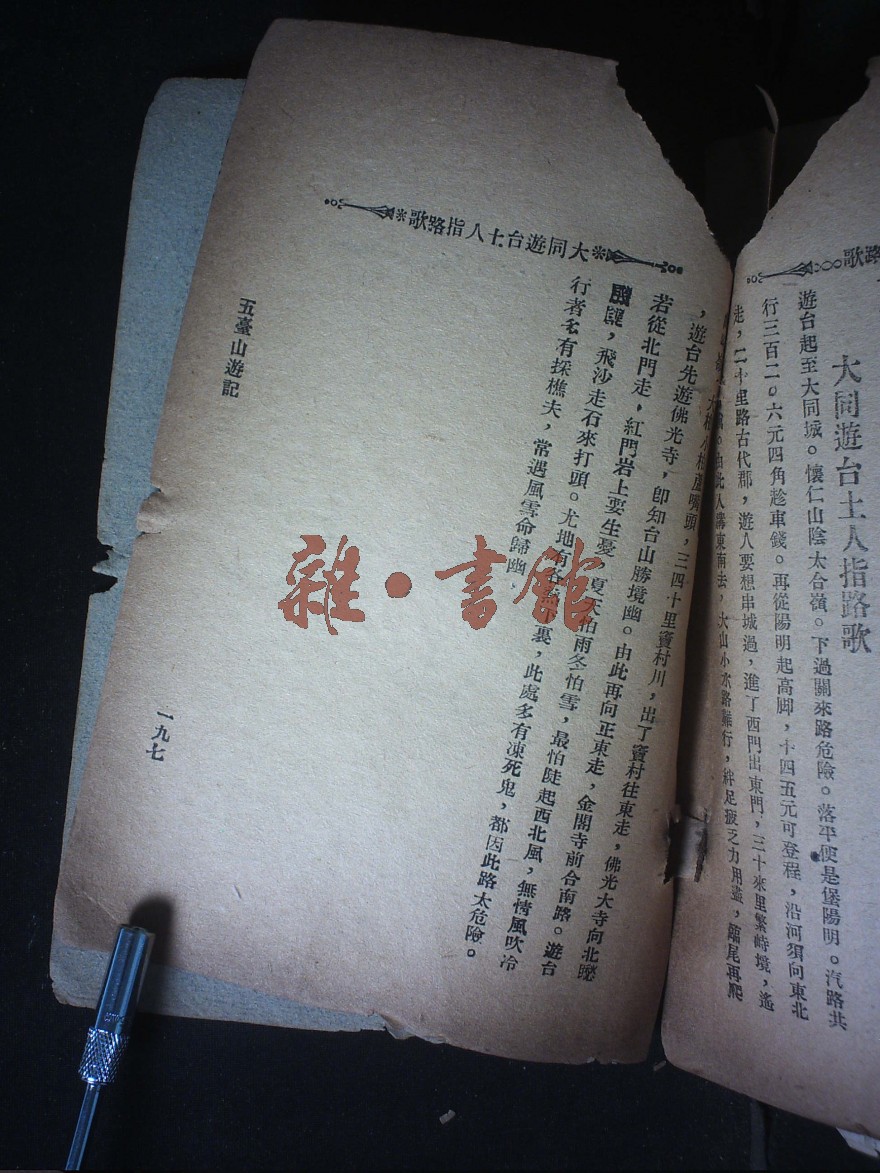 歌路
大同遊台士人指路歌
遊台起至大同城。懷仁山陰太合嶺。下過關來路危險。落平便是堡陽明。汽路共
行三百二。六元四角趁車錢。再從陽明起高脚，十四五元可登程，沿河須向東北
走，二十里路古代郡，遊人要想串城過，進了西門出東門，三十來里繁峙境，遙
由此入溝東南去，大山小水路難行，絆足疲乏力用盡，臨尾再爬
*大同遊台士人指路歌*
嘴頭，三四十里竇村川，出了竇村往東走，佛光大寺向北
，遊台先遊佛光寺，卽知台山勝境幽。由此再向正東走，金閣寺前合南路。遊台
若從北門走，紅門岩上要生憂，夏天怕雨冬怕雪，最怕陡起西北風，無情風吹冷
，飛沙走石來打頭。尤地有裏，此處多有凍死鬼，都因此路太危險。
行者多有採樵夫，常遇風雪命歸幽。
五臺山遊記
一九七
雜·書館